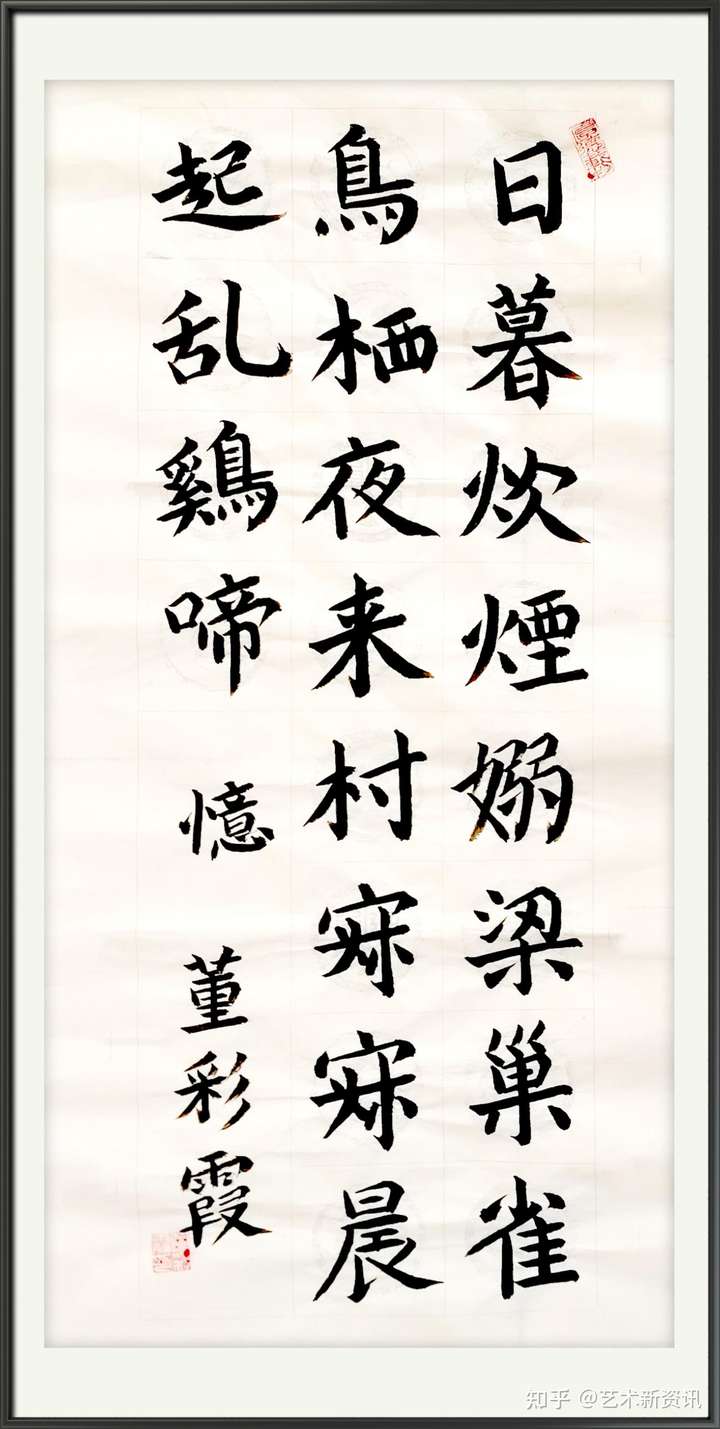 日暮炊煙嫋梁巢雀
鳥栖夜来村寂寂晨
起乱鷄啼 憶
董彩霞
知乎 @艺术新资讯